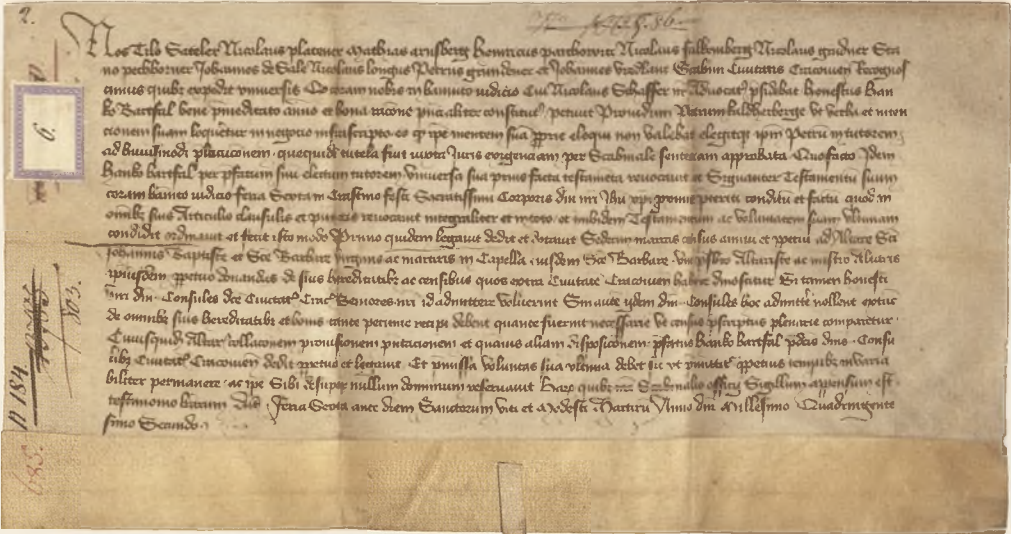 2.
Nos Tilo Sateler Nicolaus platener Mathias arnsberg Henricus parchowicz Nicolaus falkemberg Nicolaus
no pechborner Johannes de Sale Nicolaus longus Petrus et Johannes vredlant Scabini Civitatis Cracovien Recognos
cimus quibz expedit universis Qd coram nobis in bannito iudicio Cui Nicolaus Schaffer ut Advocatus psidebat honestus Han
ko Bartfal bene pmeditato animo et bona racone constitut petivit Providum Petrum ut verba et inten
cionem suam loqueretur in negocio infrascripto eo qz ipe mentem suā pprie eloqui non valebat elegitqz ipm Petrū in tutorem
ad huiusmodi placitacionem quequidē tutela fuit iuxta Juris exigenciam per Scabinale sentenciam approbata Quo facto Idem
Hanko bartfal per pfatum suū electum tutorem Universa sua prius facta testamenta revocavit et Signanter Testamentū suum
coram bannito iudicio feria Sexta in Crastino festi Sacratissimi Corporis dni nri Ihu xpi preteriti conditū et factū quod in
omībz suis Articulis clausulis et punctis revocavit integraliter et in toto et ibidem Testamentum ac voluntatem suam Ultimam
condidit ordinavit et fecit isto modo Primo quidem legavit dedit et donavit Sedecim marcas census annui et ppetui ad Altare Sti
Johannis Baptiste et Sce Barbare virginis ac martiris in Capella eiusdem Sce Barbare Altariste ac mistro Altaris
ipiusdem ppetuo donandas de suis hereditatibz ac censibus quos extra Civitatē Cracovien habere dinoscitur Si tamen honesti
viri dni Consules dce Civitat Crac Seniores nri id admittere voluerint Sin autē ydem dni Consules hoc admittē nollent extunc
de omībz suis hereditatibz et bonis tante pecunie recipi debent quante fuerint necessarie ut census pscriptus plenarie comparetur
Cuiusquidē Altaris collacionem provisionem et quamvis aliam disposicionem pfatus Hanko bartfal pdcis dnis Consu
libz Civitatis Cracovien dedit ppetuo et legavit Et pmissa voluntas sua ultima debet sic ut pmittit ppetuis temporibz invaria
biliter permanere ac ipe Sibi desuper nullum dominium reservavit Harz quibz Scabinalis officij Sigillum appensum est
testimonio literarum Dat Feria Sexta ante diem Sanctorum Viti et Modesti Martirū Anno dni Millesimo Quadringente
simo Secundo
6.
503.
n 184
685.